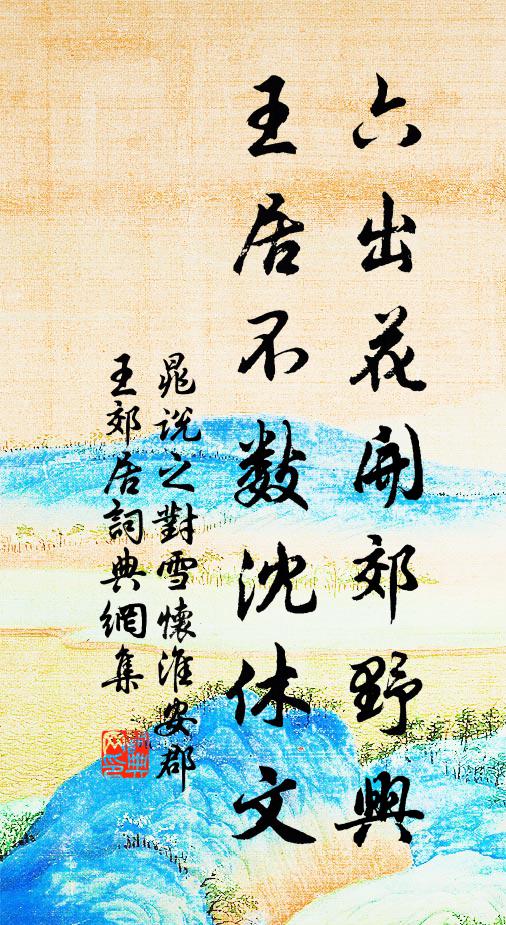 六出花開郊野興
王居不數沈休文
晁說之對雪懷淮安郡
王郊居詞典網集